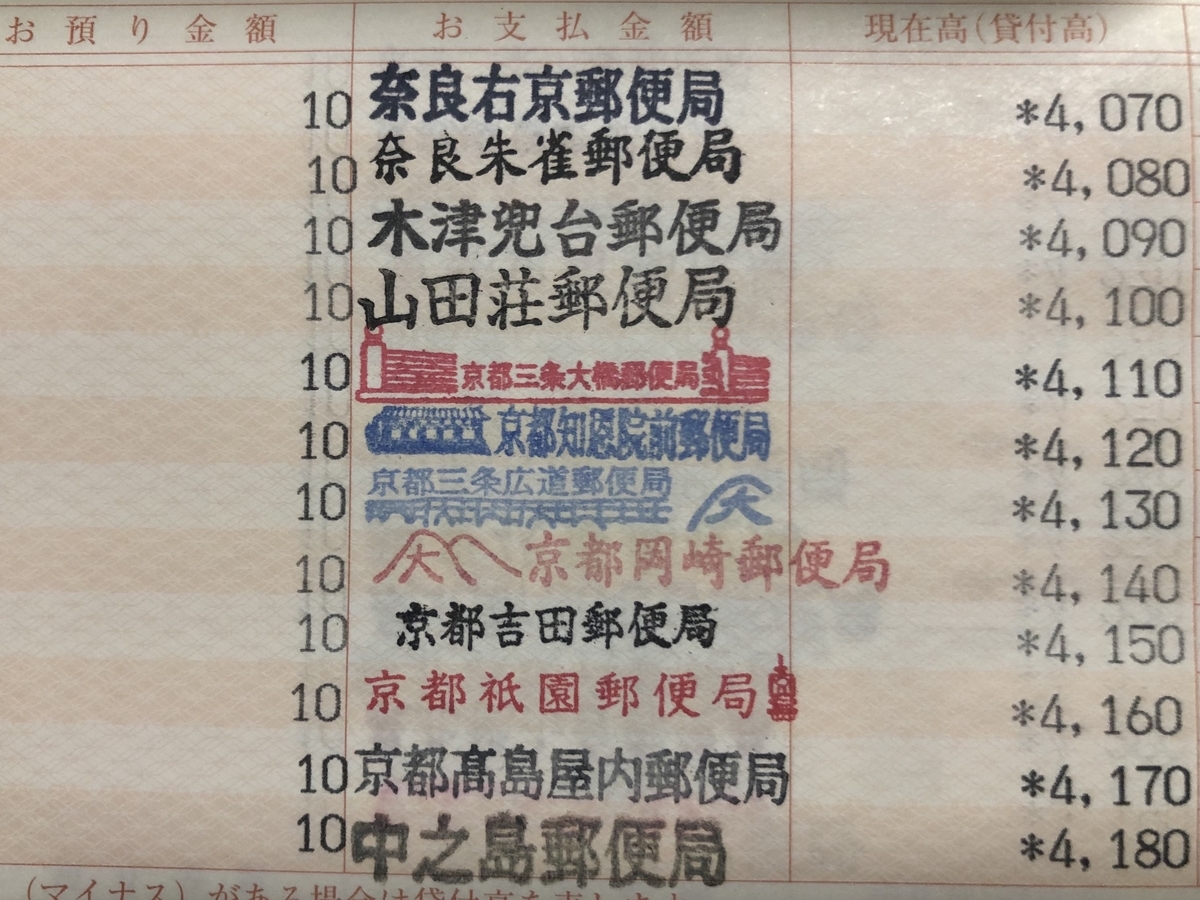 お預り金額 お支払金額 現在高(貸付高)
10 奈良右京郵便局 *4,070
10 奈良朱雀郵便局 *4,080
10 木津兜台郵便局 *4,090
10 山田荘郵便局 *4,100
10 京都三条大橋郵便局 *4,110
10 京都知恩院前郵便局 *4,120
10 京都三条広道郵便局 大 *4,130
10 大 京都岡崎郵便局 *4,140
10 京都吉田郵便局 *4,150
10 京都祇園郵便局 *4,160
10 京都髙島屋内郵便局 *4,170
10 中之島郵便局 *4,180
(マイナス)がある場合は貸付高を表します